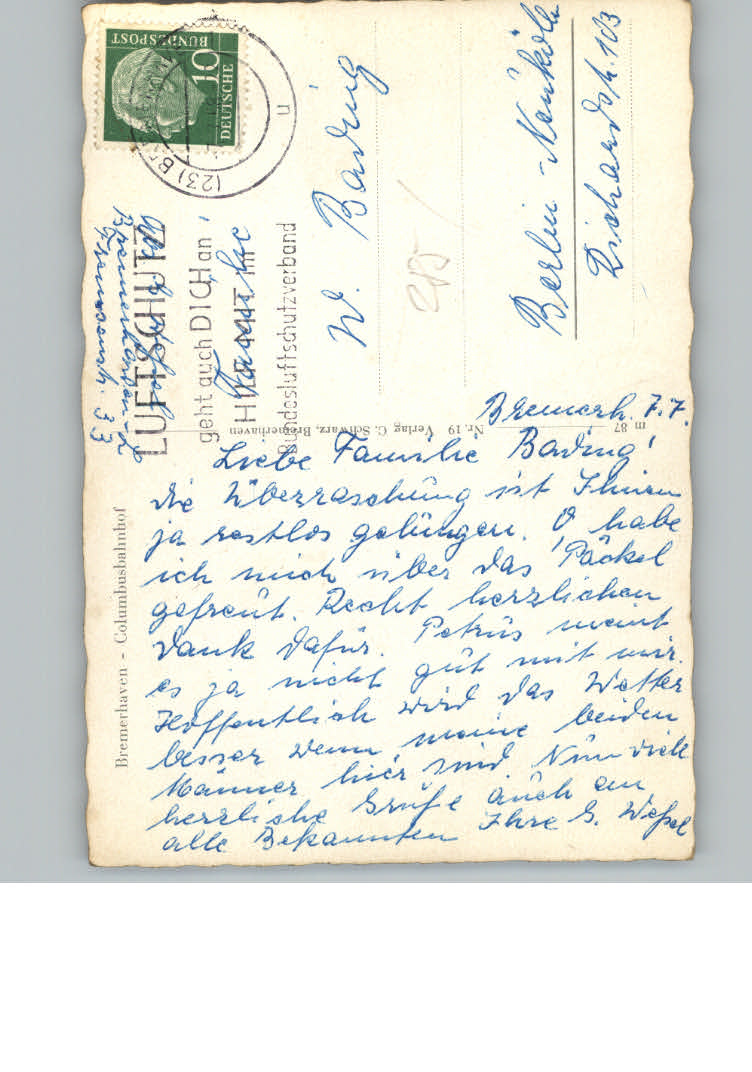 Bremerh. 7.7.
Liebe Familie Bading!
die Überraschung ist Ihnen
ja restlos gelungen. O habe
ich mich über das Päckel
gefreut. Recht herzlichen
Dank dafür. Petrus meint
es ja nicht gut mit mir.
Hoffentlich wird das Wetter
besser wenn meine beiden
Männer hier sind. Nun viele
herzliche Grüße auch an
alle Bekannten Ihre G. Weßel
Bremerhaven - Columbusbahnhof
m 87 Nr. 19 Verlag C. Schwarz, Bremerhaven
Bremerhaven-L
33
LUFTSCHUTZ
geht auch DICH an!
HILF MIT im
Bundesluftschutzverband
DEUTSCHE
BUNDESPOST
10
(23)
u
Familie
W. Bading
Berlin-Neukölln
Richardstr. 103